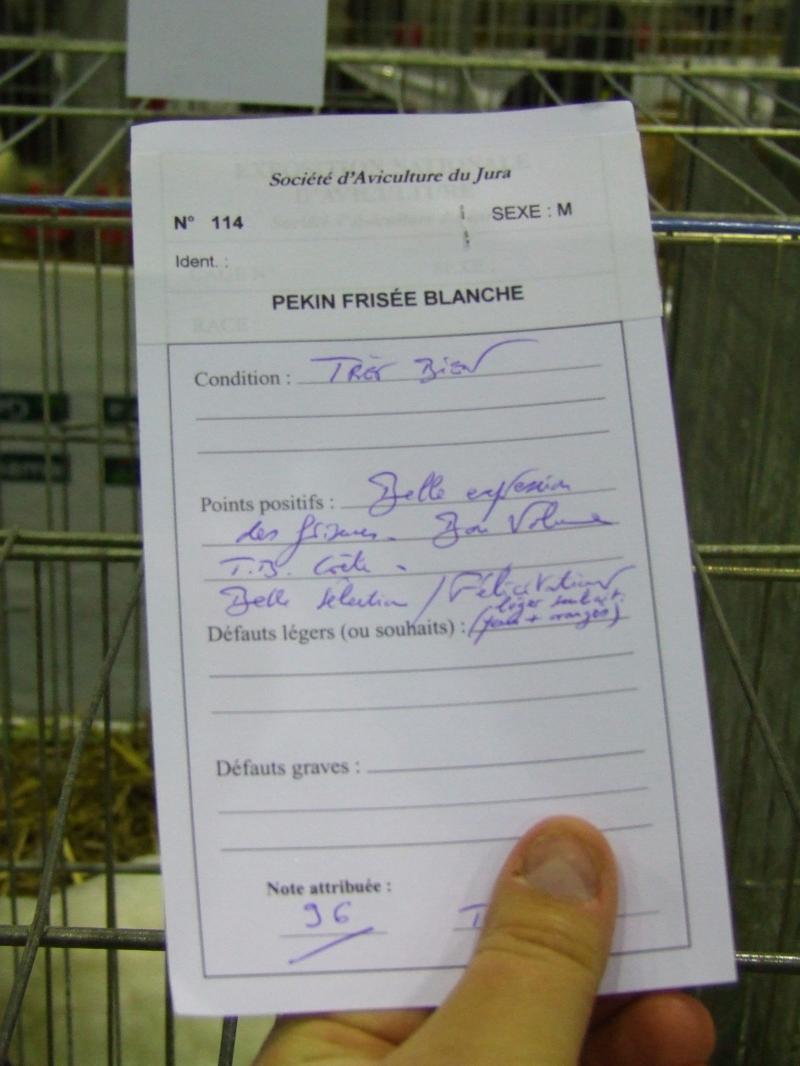 Société d'Aviculture du Jura
N° 114 SEXE : M
Ident. :
PEKIN FRISÉE BLANCHE
Condition : TRÈS BIEN
Points positifs : Belle expression
des frisures. Bon Volume
T.B. Crête.
Belle sélection / Félicitations
léger souhait.
Défauts légers (ou souhaits) : (yeux + oranges)
Défauts graves :
Note attribuée :
96